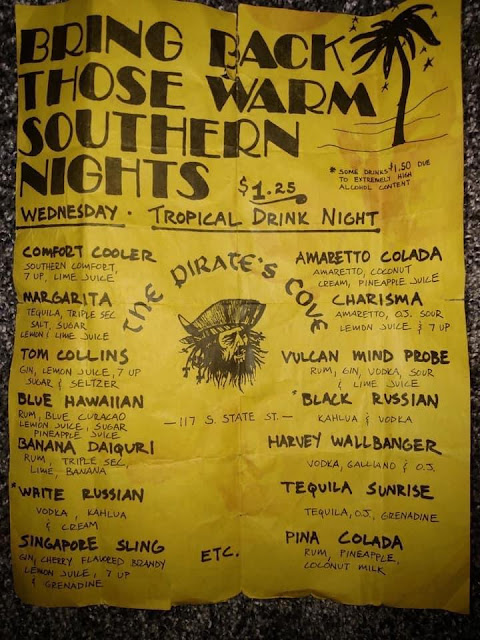 BRING BACK
THOSE WARM
SOUTHERN
NIGHTS
$1.25
* SOME DRINKS $1.50 DUE
TO EXTREMELY HIGH
ALCOHOL CONTENT
WEDNESDAY · TROPICAL DRINK NIGHT
COMFORT COOLER
SOUTHERN COMFORT,
7 UP, LIME JUICE
MARGARITA
TEQUILA, TRIPLE SEC
SALT, SUGAR
LEMON & LIME JUICE
TOM COLLINS
GIN, LEMON JUICE, 7 UP
SUGAR & SELTZER
BLUE HAWAIIAN
RUM, BLUE CURACAO
LEMON JUICE, SUGAR
PINEAPPLE JUICE
BANANA DAIQURI
RUM, TRIPLE SEC,
LIME, BANANA
*WHITE RUSSIAN
VODKA, KAHLUA
& CREAM
SINGAPORE SLING
GIN, CHERRY FLAVORED BRANDY
LEMON JUICE, 7 UP
& GRENADINE
THE PIRATE'S COVE
—117 S. STATE ST.—
ETC.
AMARETTO COLADA
AMARETTO, COCONUT
CREAM, PINEAPPLE JUICE
CHARISMA
AMARETTO, O.J. SOUR
LEMON JUICE & 7 UP
VULCAN MIND PROBE
RUM, GIN, VODKA, SOUR
& LIME JUICE
*BLACK RUSSIAN
KAHLUA & VODKA
HARVEY WALLBANGER
VODKA, GALLIANO & O.J.
TEQUILA SUNRISE
TEQUILA, O.J., GRENADINE
PINA COLADA
RUM, PINEAPPLE,
COCONUT MILK